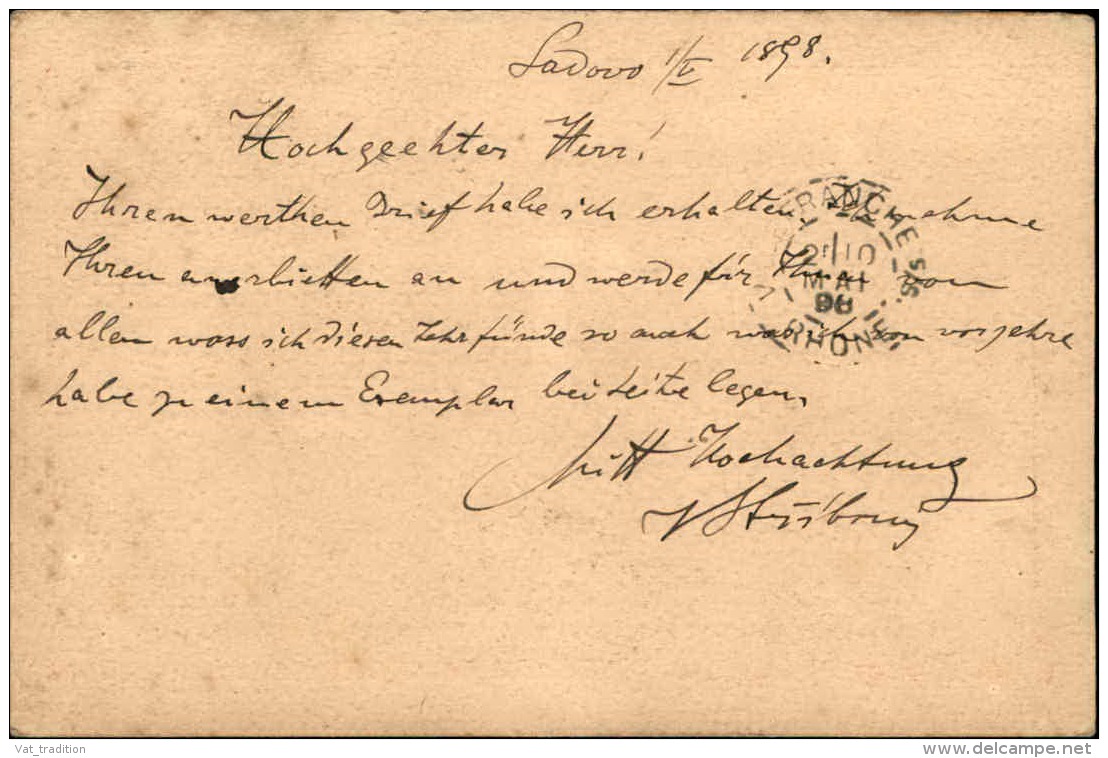 Sadovo 1/V 1898.
Hochgeehter Herr!
Ihren werthen Brief habe ich erhalten. Ich nehme
Ihren anerbietten an und werde für Ihnen von
allem wass ich diesen Jahr fünde so auch was ich von vorjahre
habe zu einem Exemplar bei seite legen.
Mitt Hochachtung
V Stříbrný
FRANCHE S.S.
MAI
98
RHONE
Vat_tradition
www.delcampe.net